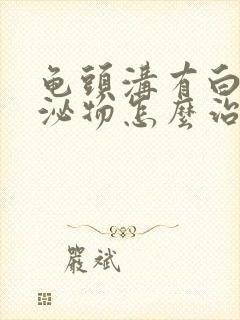 龟頭溝有白
泌物怎麼治
嚴斌